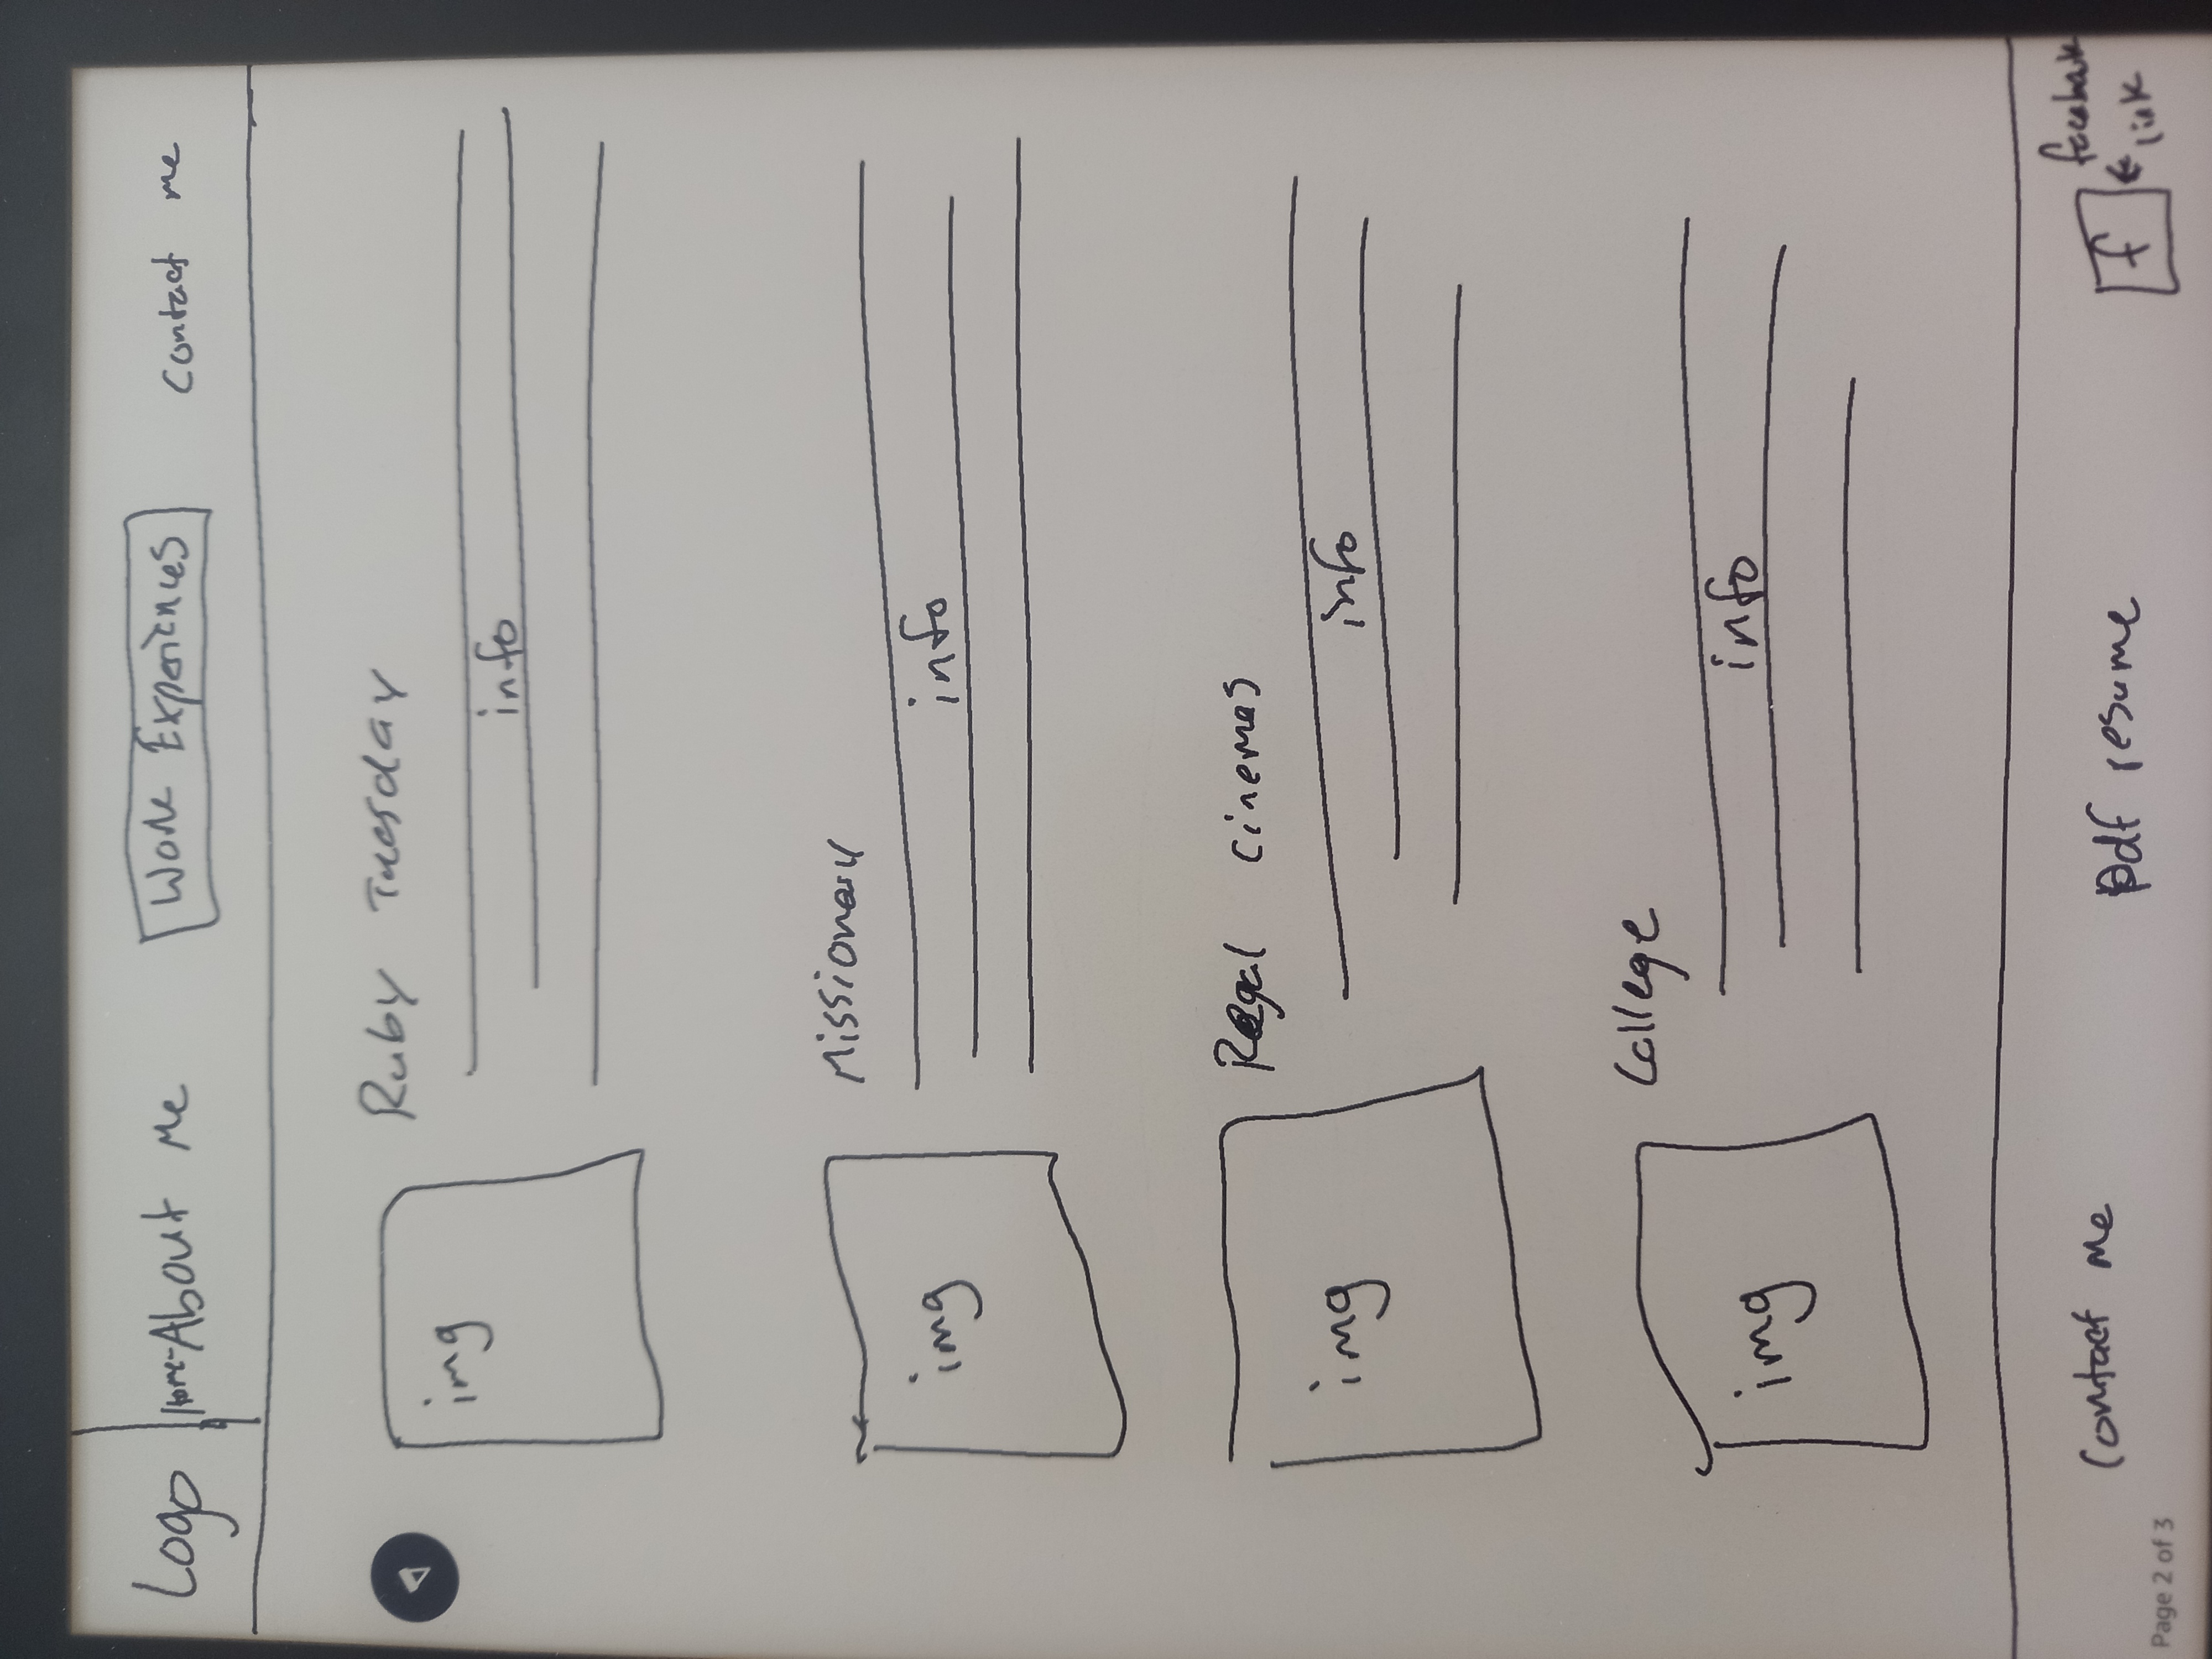 Logo
Home-About Me
Work Experiences
Contact me
Ruby Tuesday
img
info
Missionary
img
info
Regal cinemas
img
info
College
img
info
Contact me
pdf resume
f
facebook
link
Page 2 of 3